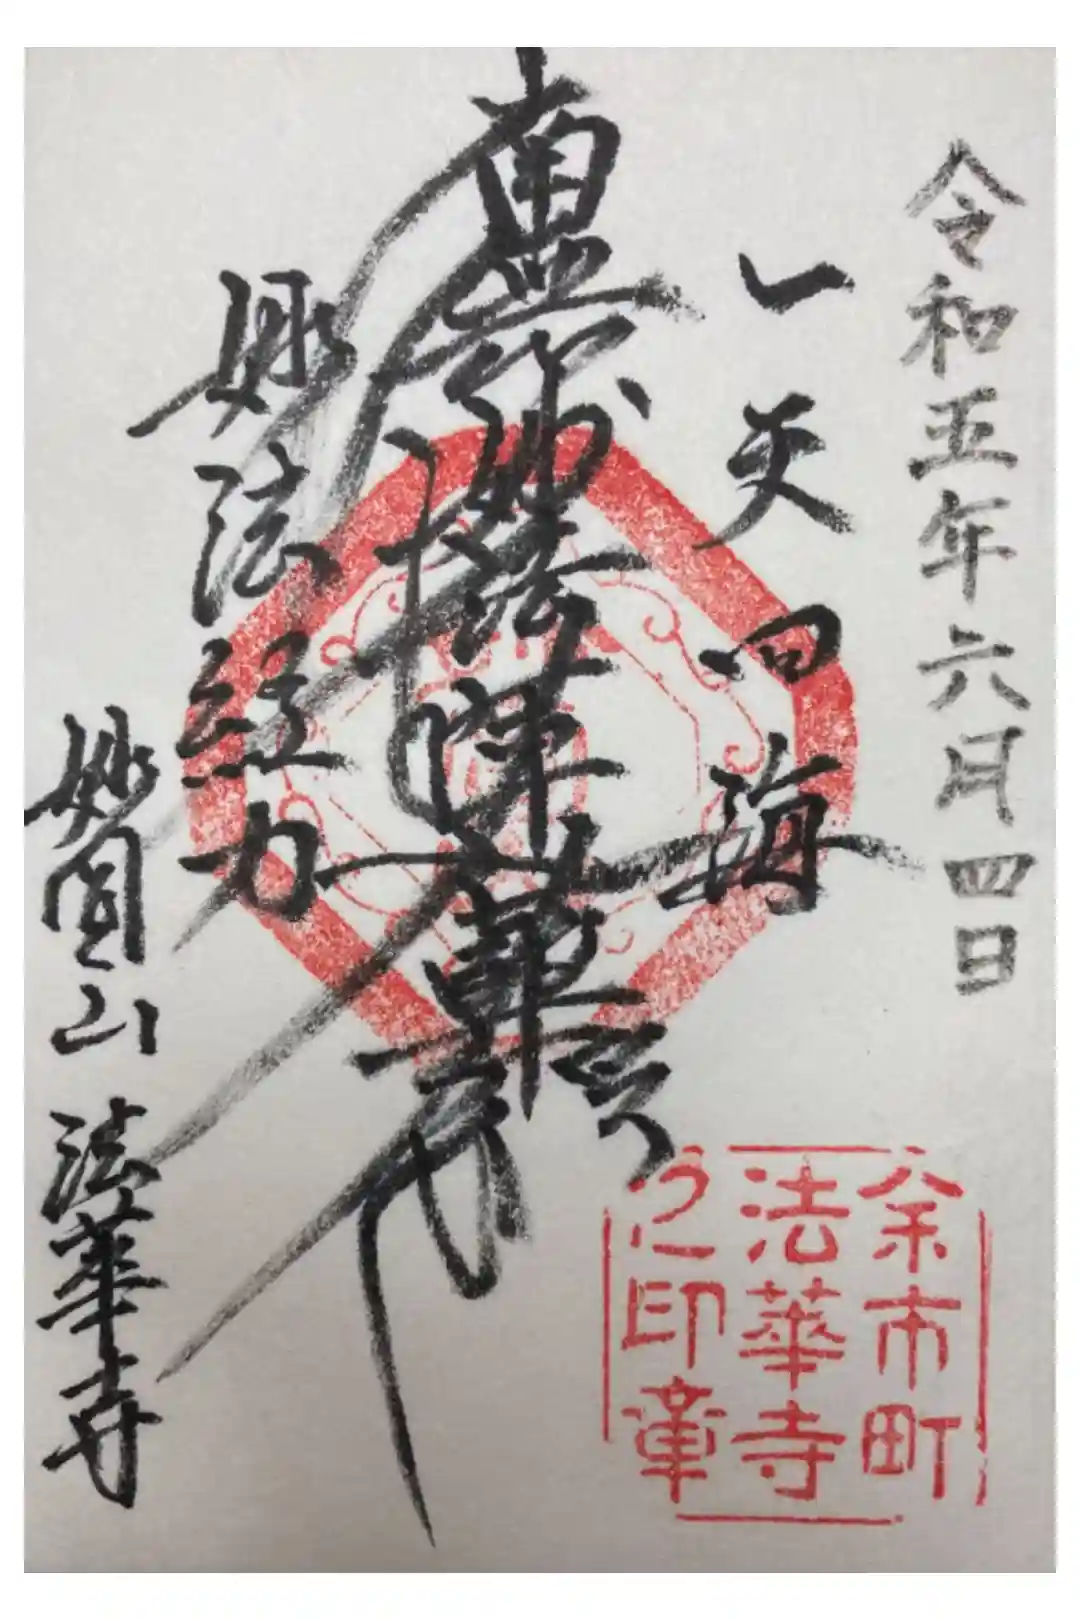 令和五年六月四日
一天四海
南無妙法蓮華経
妙法経力
妙圓山 法華寺
余市町
法華寺
之印章